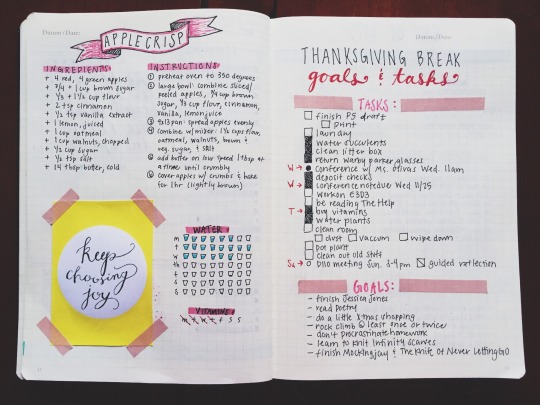 Datum / Date:
APPLE CRISP
INGREDIENTS
+ 4 red, 4 green apples
+ 3/4 + 1 cup brown sugar
+ 1/3 + 1 1/2 cup flour
+ 2 tsp cinnamon
+ 1/2 tsp vanilla extract
+ 1 lemon, juiced
+ 1 cup oatmeal
+ 1 cup walnuts, chopped
+ 1/2 cup sugar
+ 1/2 tsp salt
+ 14 tbsp butter, cold
INSTRUCTIONS
① preheat oven to 350 degrees
② large bowl: combine sliced/
peeled apples, 3/4 cup brown
sugar, 1/3 cup flour, cinnamon,
vanilla, lemon juice
③ 9x13 pan: spread apples evenly
④ combine w/ mixer: 1 1/2 cups flour,
oatmeal, walnuts, brown &
reg. sugar, & salt
⑤ add butter on low speed 1 tbsp at
a time until crumbly
⑥ cover apples w/ crumbs & bake
for 1 hr (lightly brown)
keep
choosing
joy
WATER
m
t
w
th
f
s
s
VITAMINS:
m t w t f s s
Datum / Date:
THANKSGIVING BREAK
goals & tasks
TASKS:
finish PS draft
print
laundry
water succulents
clean litter box
return warby parker glasses
W → conference w/ ms. Olivas Wed. 11am
deposit checks
W → conference note due Wed 11/25
work on E3D3
be reading The Help
T → buy vitamins
water plants
clean room
dust vacuum wipe down
pot plant
clean out old stuff
Su → D110 meeting Sun. 3-4pm guided reflection
GOALS:
- finish Jessica Jones
- read poetry
- do a little x'mas shopping
- rock climb @ least once or twice
- don't procrastinate homework
- learn to knit infinity scarves
- finish Mockingjay & The Knife Of Never Letting GO